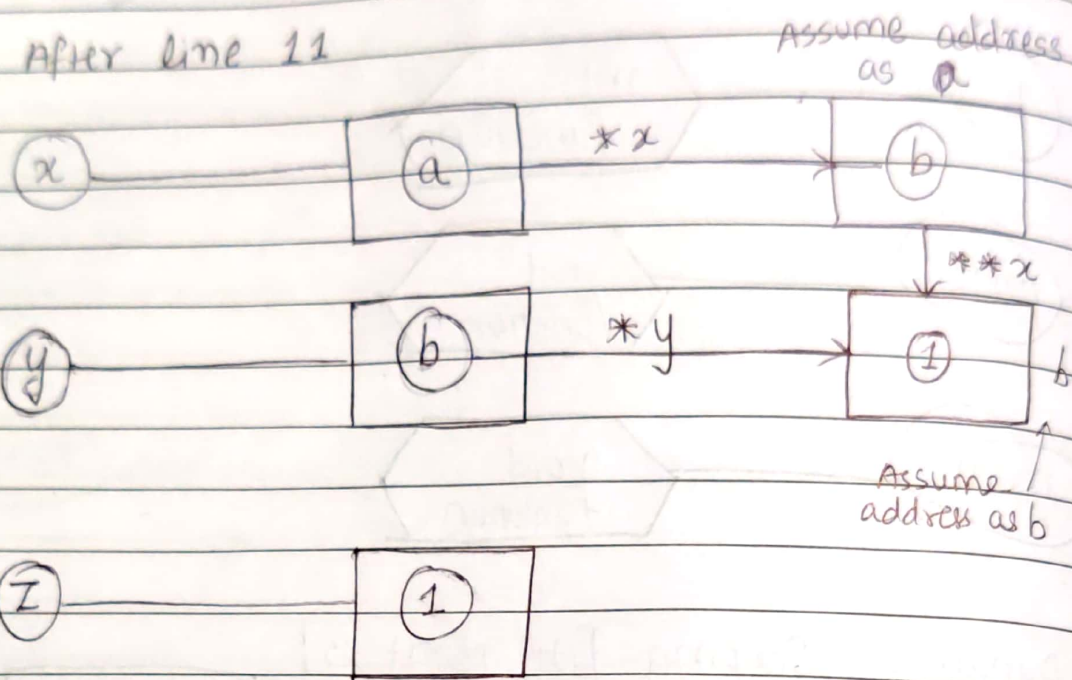 After line 11
Assume address
as a
x a *x b
**x
y b *y 1 b
Assume
address as b
Z 1